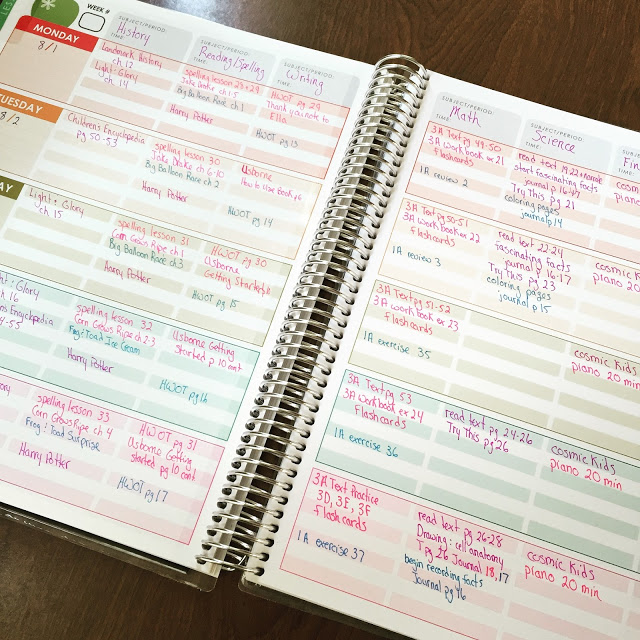 WEEK #
SUBJECT/PERIOD:
History
TIME:
SUBJECT/PERIOD:
Reading/Spelling
TIME:
SUBJECT/PERIOD:
Writing
TIME:
MONDAY
8/1
Landmark History
ch. 12
Light + Glory
ch. 14
ch 15
Big Balloon Race ch 1
Harry Potter
HWOT pg 29
Thank you note to
Ella
HWOT pg 13
TUESDAY
8/2
Childrens Encyclopedia
pg 50-53
spelling lesson 30
Jake Drake ch 6-10
Big Balloon Race ch 2
Harry Potter
Usborne
HWOT pg 14
Light + Glory
ch. 15
spelling lesson 31
Corn Grows Ripe ch 1
Big Balloon Race ch 3
Harry Potter
HWOT pg 30
Usborne
Getting Started
HWOT pg 15
Glory
ch. 16
Encyclopedia
spelling lesson 32
Corn Grows Ripe ch 2-3
Frog + Toad Ice Cream
Harry Potter
Usborne Getting
Started p 10 cont
HWOT pg 16
spelling lesson 33
Corn Grows Ripe ch 4
Frog + Toad Surprise
Harry Potter
HWOT pg 31
Usborne Getting
started pg 10 cont
HWOT pg 17
SUBJECT/PERIOD:
Math
TIME:
SUBJECT/PERIOD:
Science
TIME:
SUBJECT/PERIOD:
TIME:
3A Text pg 49-50
3A work book ex 21
flashcards
1A review 2
read text pg 19-22 + narrate
start fascinating facts
journal pg 16-17
Try This pg 21
coloring pages
journal p 14
3A Text pg 50-51
3A work book ex 22
flashcards
1A review 3
read text 22-24
fascinating facts
journal pg 16-17
Try this pg 23
coloring pages
journal p 15
cosmic kids
piano 20 min
3A Text pg 51-52
3A work book ex 23
flashcards
1A exercise 35
cosmic kids
piano 20 min
3A Text pg 53
3A workbook ex 24
Flashcards
1A exercise 36
read text pg 24-26
Try This pg 26
cosmic kids
piano 20 min
3A Text Practice
3D, 3E, 3F
flashcards
1A exercise 37
read text pg 26-28
Drawing: cell anatomy
T pg 26 Journal 18, 17
begin recording facts
Journal pg 16
cosmic kids
piano 20 min